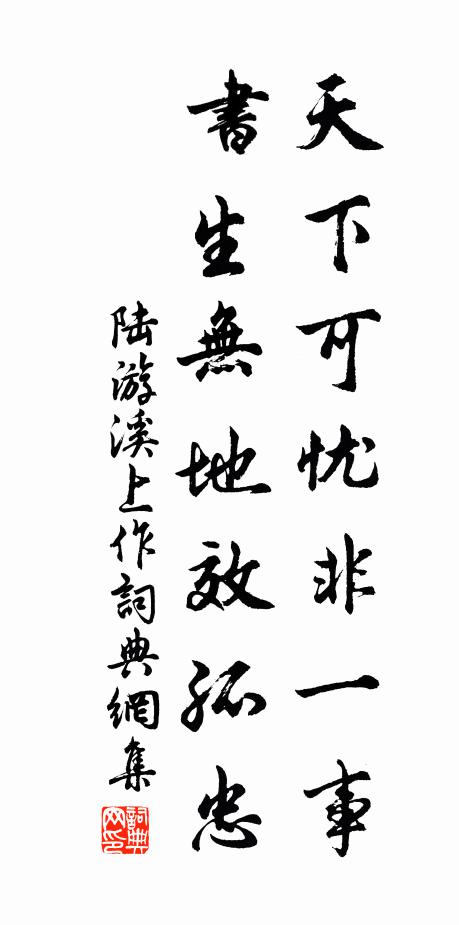 天下可忧非一事
書生無地效孤忠
陆游溪上作詞典網集
詞典网印